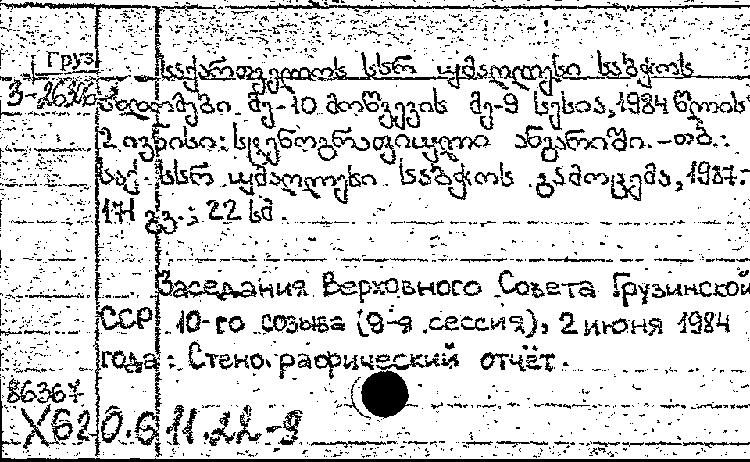 Груз
საქართველოს სსრ უმაღლესი საბჭოს
3-2626 სხდომები მე-10 მოწვევის მე-9 სესია, 1984 წლის
2 ივნისი: სტენოგრაფიული ანგარიში. - თბ.:
საქ. სსრ უმაღლესი საბჭოს გამოცემა, 1987.-
171 გვ.; 22 სმ.
Заседания Верховного Совета Грузинской
ССР 10-го созыва (9-я сессия), 2 июня 1984
года: Стенографический отчёт.
86367
X620.611.22-9